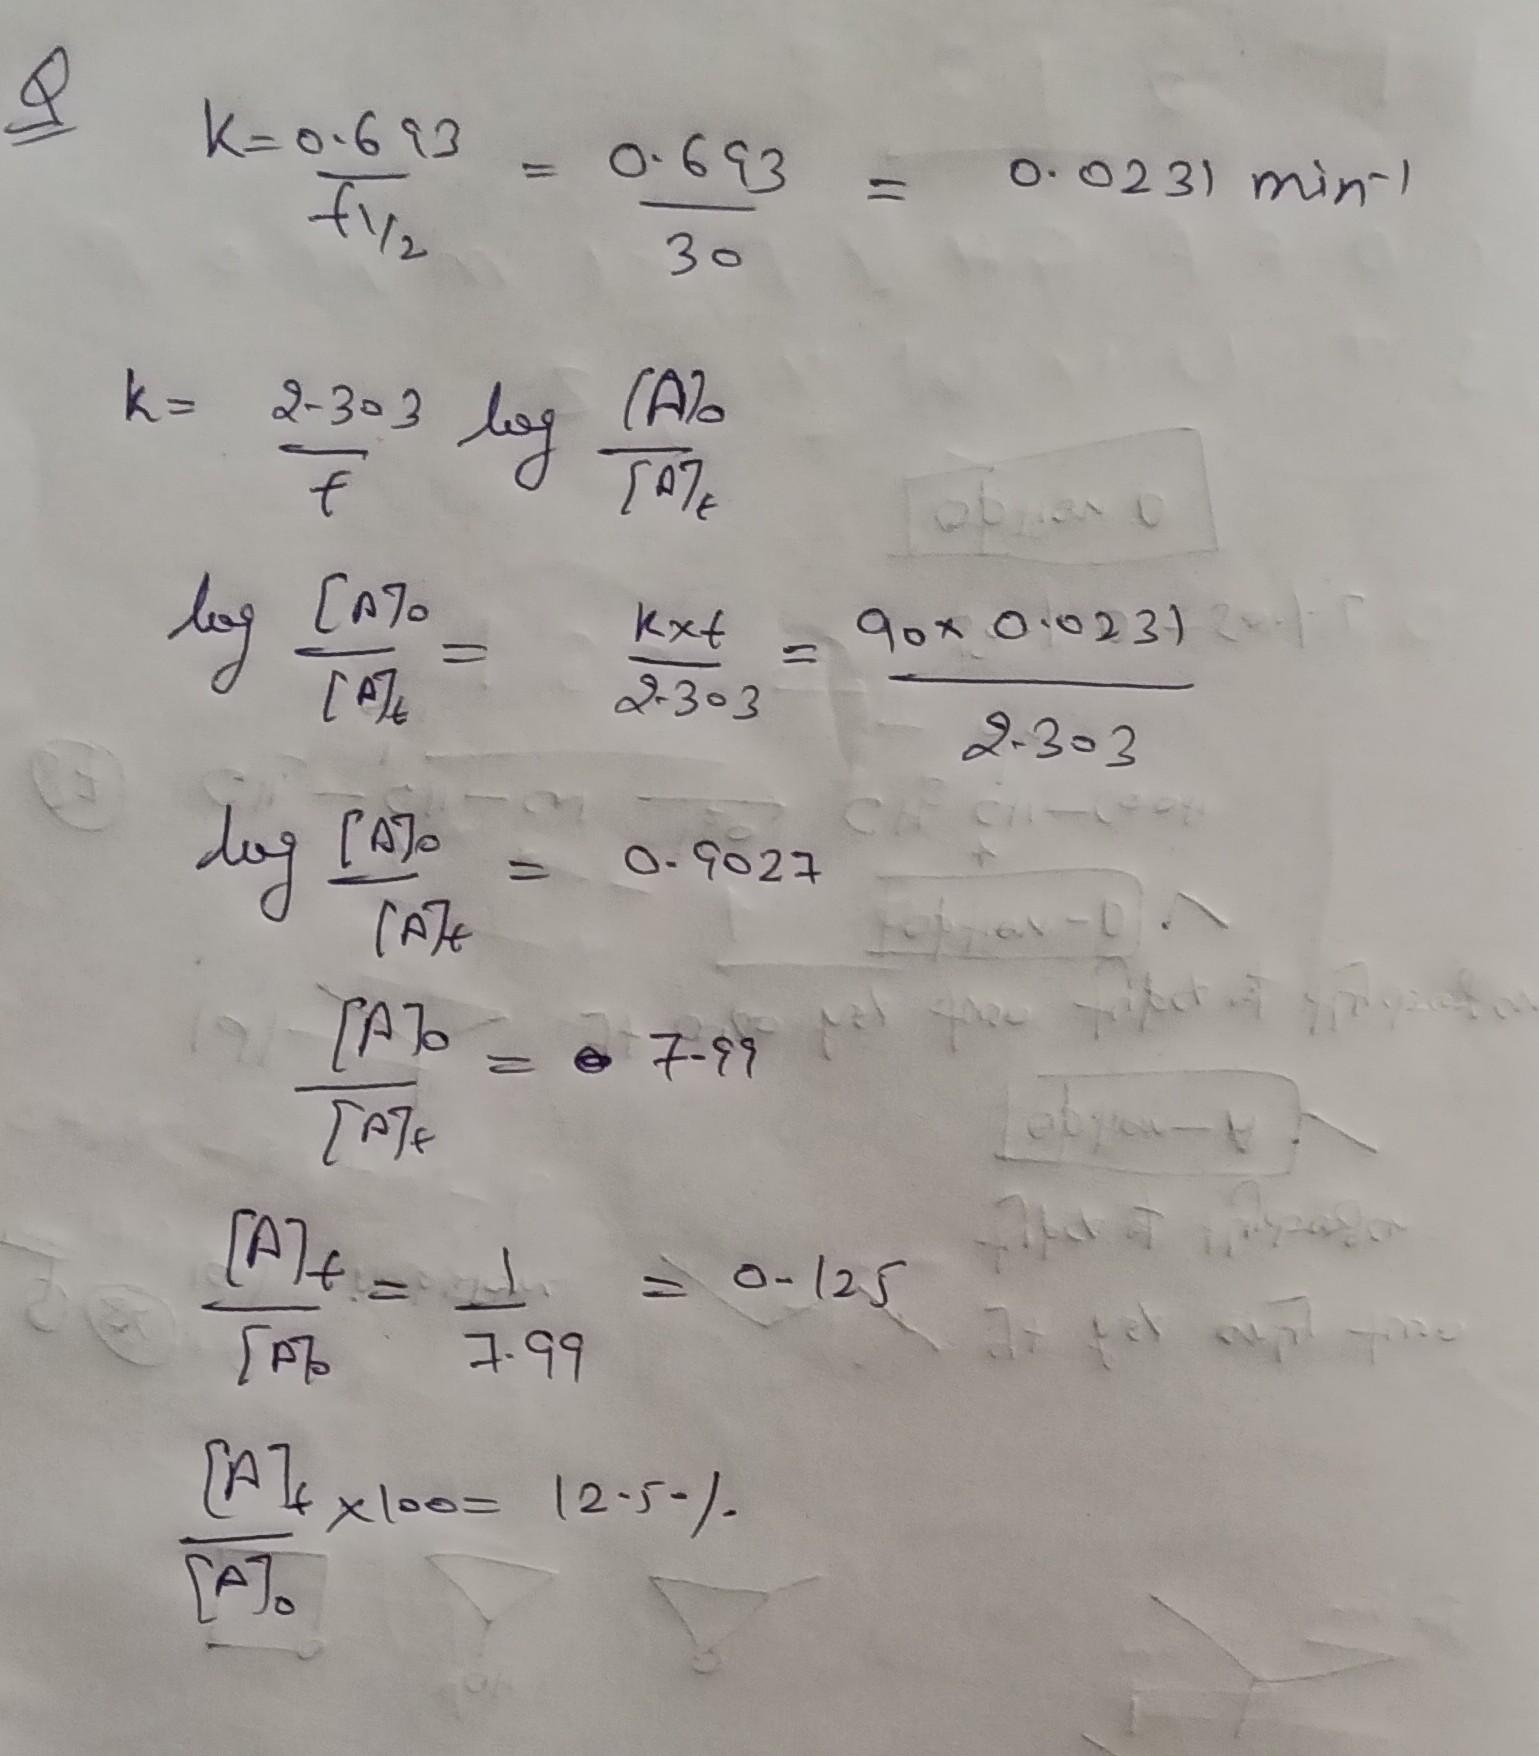 Q
K = 0.693/t1/2 = 0.693/30 = 0.0231 min-1
k = 2.303/t log [A]0/[A]t
log [A]0/[A]t = k×t/2.303 = 90×0.0231/2.303
log [A]0/[A]t = 0.9027
[A]0/[A]t = 7.99
[A]t/[A]0 = 1/7.99 = 0.125
[A]t/[A]0 ×100 = 12.5%